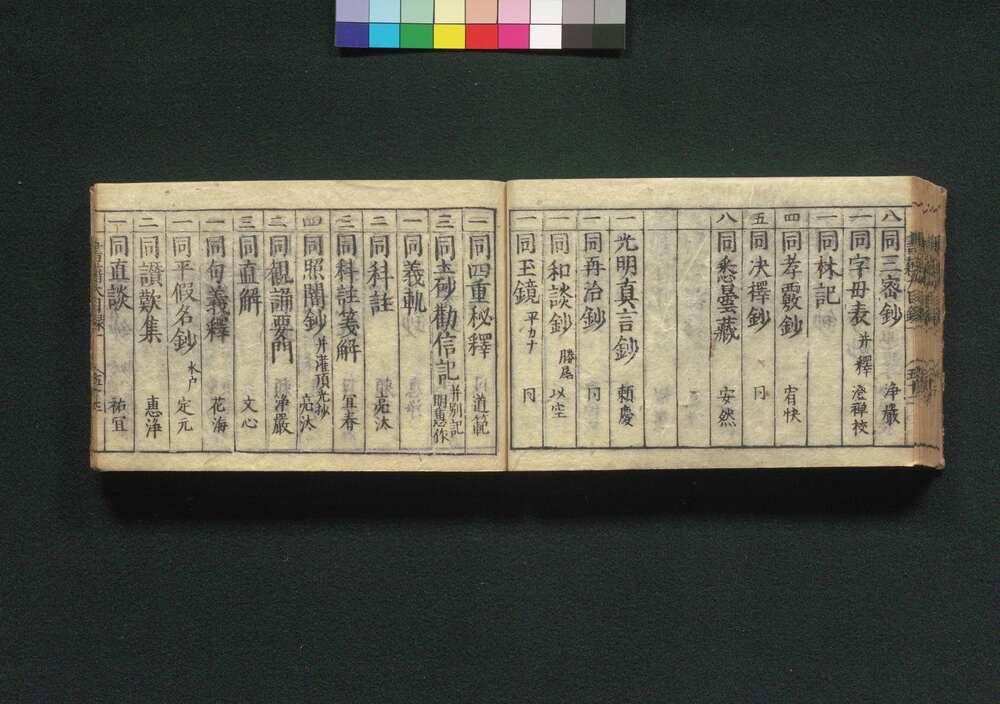 八 同三密鈔 浄嚴
一 同字母表 并釋 澄禅校
一 同林記
四 同孝覈鈔 宥快
五 同决擇鈔 同
八 同悉曇藏 安然
一 光明真言鈔 頼慶
一 同再治鈔 同
一 同和談鈔 以空
一 同玉鏡 平カナ 同
一 同四重秘釋 道範
三 同土砂勸信記 并別記 明惠作
一 同義軌
二 同科註 亮汰
三 同科註箋解 宜春
四 同照闇鈔 亮汰
二 同観誦要門 浄嚴
三 同直解 文心
一 同句義釋 花海
一 同平假名鈔 水戸 定元
二 同讃歎集 惠浄
一 同直談 祐宜